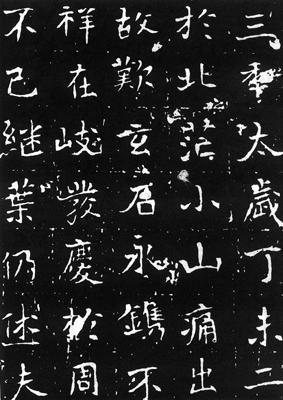 三秊太歲丁未二
於北茫小山痛出
故歎玄石永鐫不
祥在岐發慶於周
不已継葉仍述夫